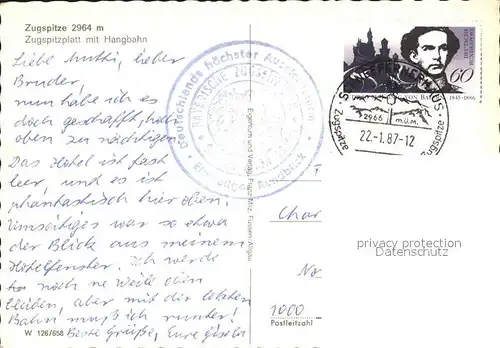 Zugspitze 2964 m
Zugspitzplatt mit Hangbahn
Liebe Mutki, lieber
Bruder,
nun habe ich es
doch geschafft, hier
oben zu nächtigen.
Das Hotel ist fast
leer, und es ist
phantastisch hier oben.
Umseitiges war so etwa
der Blick aus meinem
Hotelfenster. Ich werde
noch ne Weile oben
bleiben, aber mit der letzten
Bahn muß ich runter!
Beste Grüße, Eure Gisela
W 126/658
Deutschlands höchster Aussichtsturm
BAYERISCHE ZUGSPITZ
Rundblick
Eigentum und Verlag: Franz Milz, Füssen/Allgäu
DEUTSCHE
BUNDESPOST
60
1845-1886
SCHNEEFERNERHAUS
Zugspitze
2966 m.ü.M.
Zugspitze
22.-1.87-12
Char
No
1000
Postleitzahl
privacy protection
Datenschutz